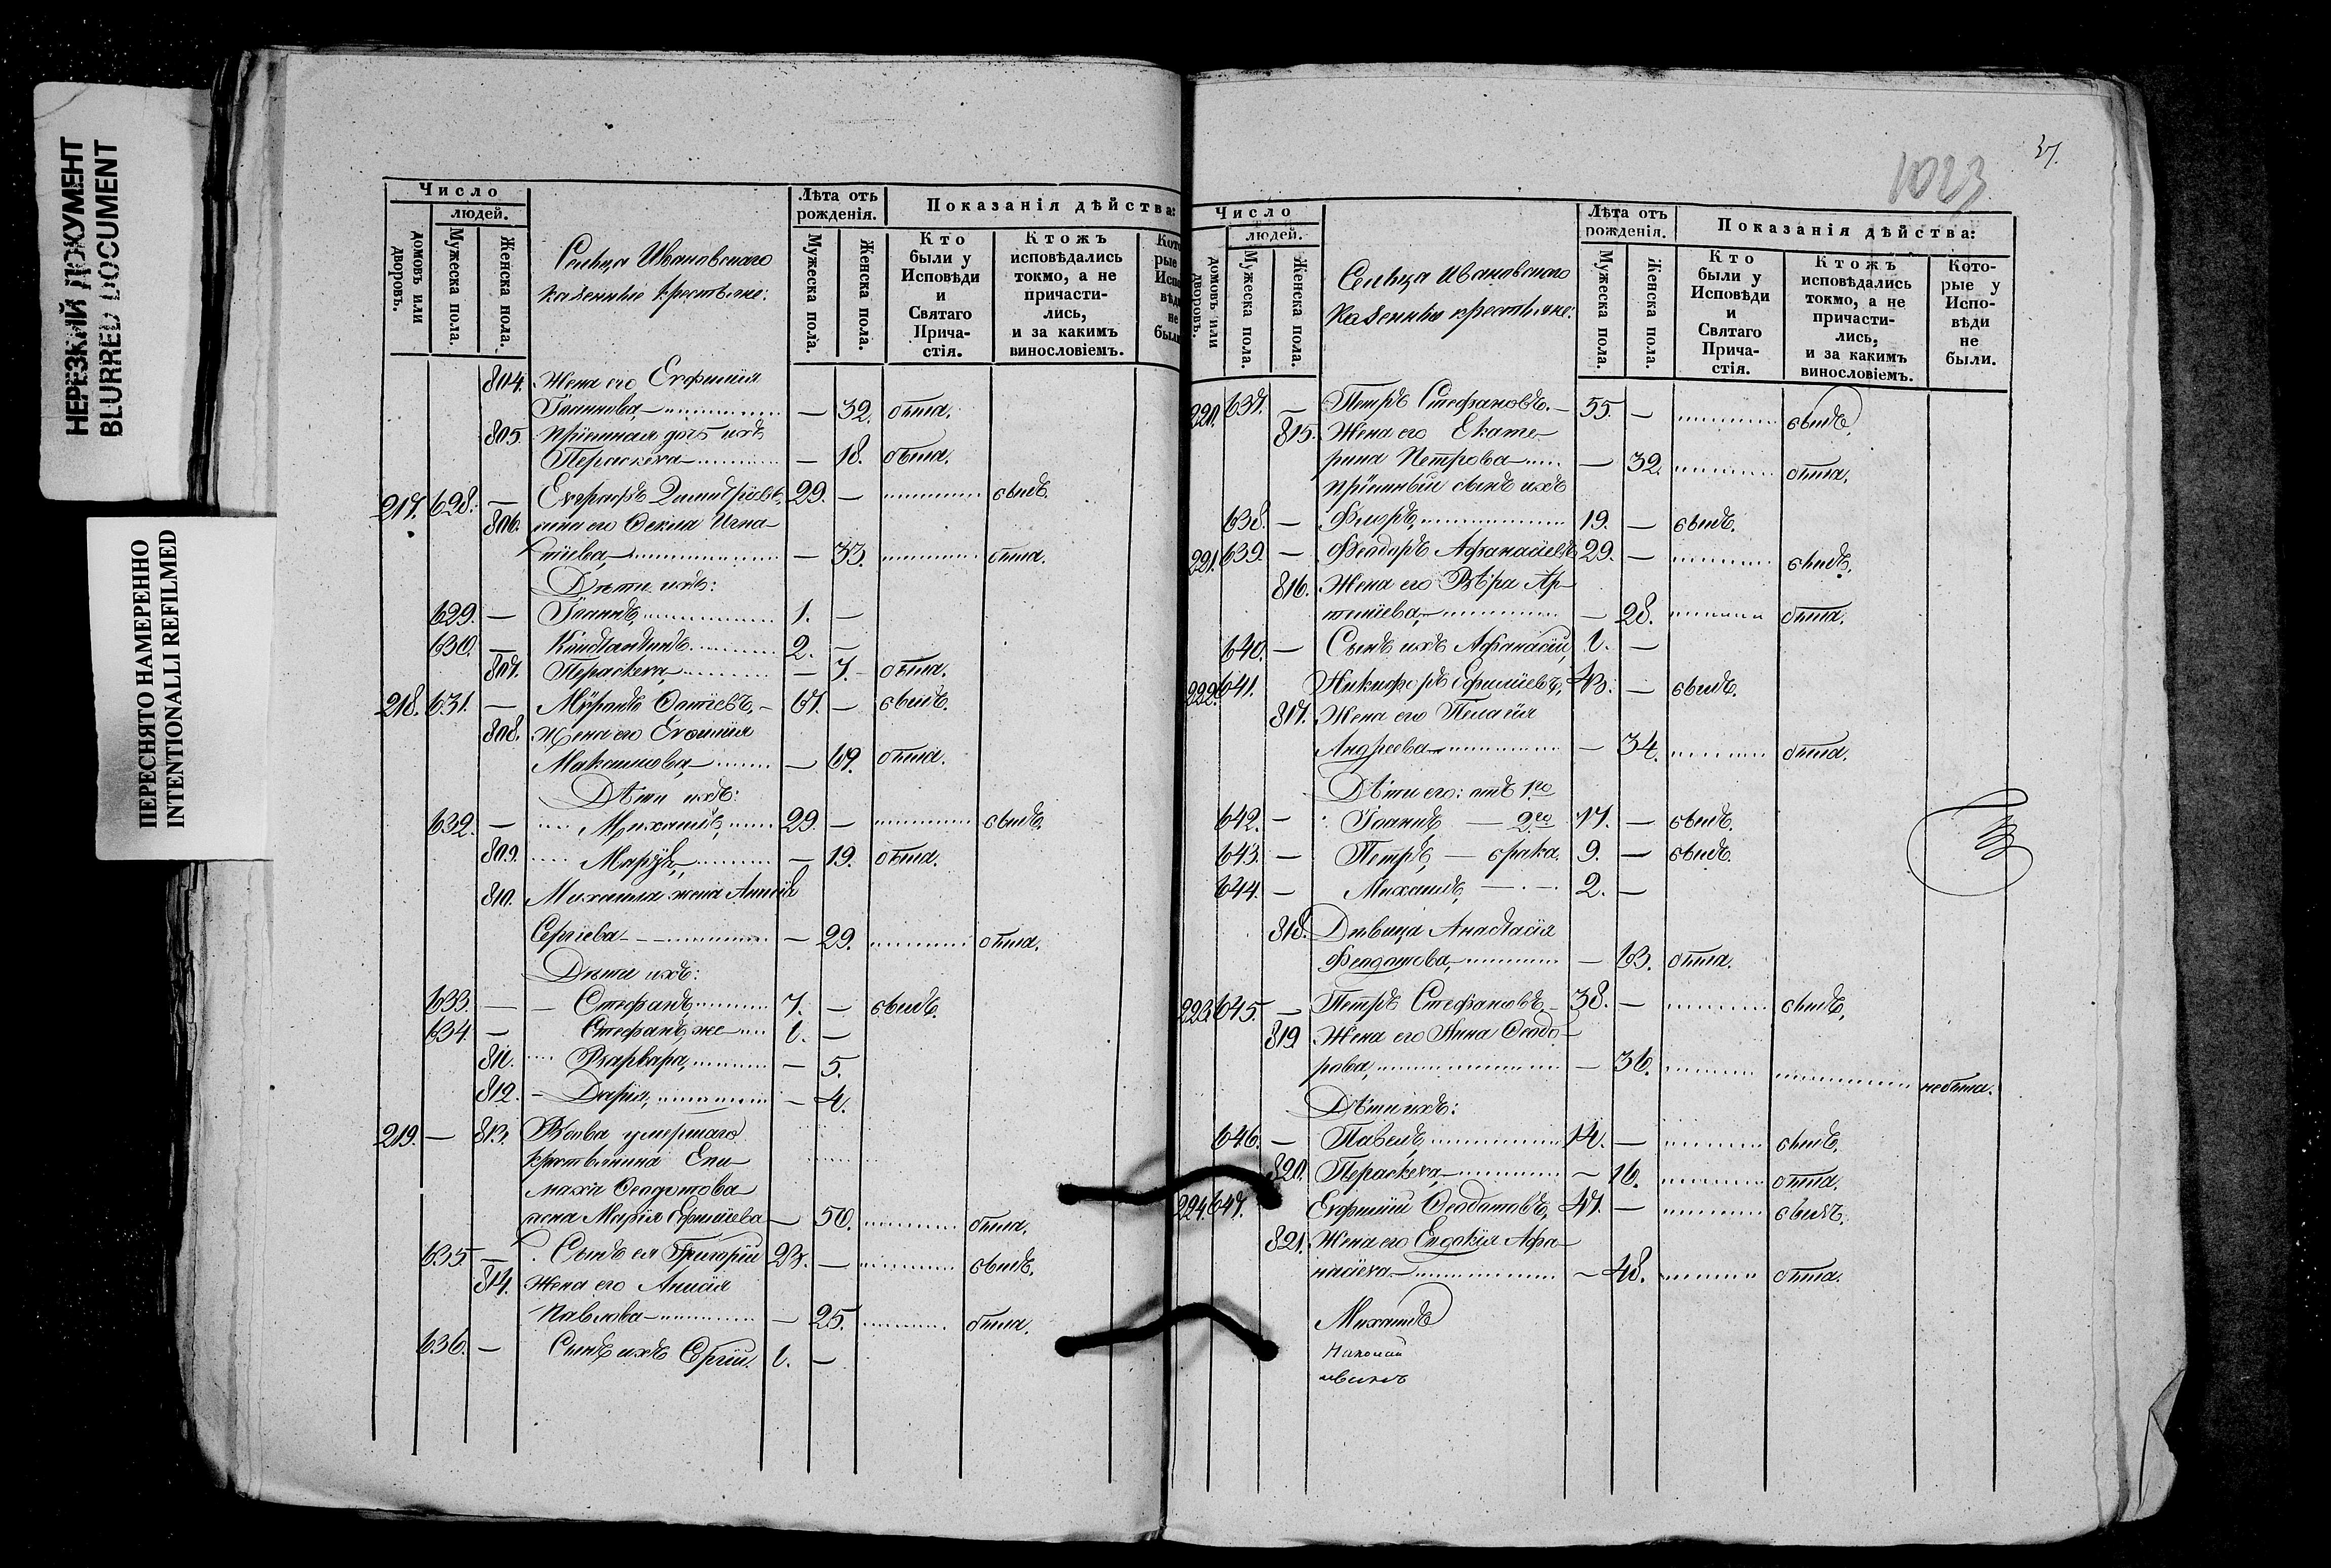 НЕРЕЗКИЙ ДОКУМЕНТ
BLURRED DOCUMENT
ПЕРЕСНЯТО НАМЕРЕННО
INTENTIONALLI REFILMED
Число
людей.
домовъ или дворовъ.
Мужеска пола.
Женска пола.
Сельца Ивановскаго
казенные крестьяне:
Лѣта отъ рожденія.
Мужеска пола.
Женска пола.
Показанія дѣйства:
Кто были у Исповѣди и Святаго Прича-стія.
Ктожъ исповѣдались токмо, а не причасти-лись, и за какимъ винословіемъ.
804. Жена его Евфимія
Іоаннова, — 32. была.
805. Пріемная дочь ихъ
Параскева — 18. была.
217. 628. — Евграфъ Димитріевъ, 29. — былъ.
806. жена его Фекла Игна-
тіева, — 33. была.
Дѣти ихъ:
629. — Іоаннъ, 1. —
630. — Константинъ 2. —
807. Параскева, — 7. — была.
218. 631. — Фатіевъ, — 67. — былъ.
808. Жена его Евфимія
Максимова, — 69. была.
Дѣти ихъ:
632. — Михаилъ, 29. — былъ.
809. — 19. была.
810. Михаила жена Анисія
Сергіева — 29. была.
Дѣти ихъ:
633. — Стефанъ, 7. — былъ.
634. — Стефанъ же 1. —
811. Варвара, — 5.
812. — Дарія, — 4.
219. — 813. Вдова умершаго
крестьянина Епи-
маха Феодотова
жена Марія Ефимова — 50. была.
635. — Сынъ ея Григорій 23. — былъ.
814. Жена его Анисія
Павлова — 25. была.
636. — Сынъ ихъ Сергій, 1. —
1023
Число
людей.
домовъ или дворовъ.
Мужеска пола.
Женска пола.
Сельца Ивановскаго
казенные крестьяне:
Лѣта отъ рожденія.
Мужеска пола.
Женска пола.
Показанія дѣйства:
Кто были у Исповѣди и Святаго Прича-стія.
Ктожъ исповѣдались токмо, а не причасти-лись, и за какимъ винословіемъ.
Кото-рые у Испо-вѣди не были.
220. 637. — Петръ Стефановъ. — 55. — былъ,
815. Жена его Екате-
рина Петрова — 32. была.
Пріемный сынъ ихъ
638. — Флоръ, 19. — былъ.
221. 639. — Феодоръ Афанасіевъ 29. — былъ.
816. Жена его Вѣра Ар-
теміева, — 28. была.
640. — Сынъ ихъ Афанасій, 1. —
222. 641. Никифоръ Ефиміевъ, 43. — былъ.
817. Жена его Пелагія
Андреева — 34. была.
Дѣти его: отъ 1го
642. — Іоаннъ — 2го 17. — былъ.
643. — Петръ, — брака. 9. — былъ.
644. — Михаилъ, 2. —
818. Дѣвица Анастасія
Феодотова, — 63. была.
223. 645. — Петръ Стефановъ, — 38. — былъ,
819 Жена его Анна Феодо-
рова, — 36. небыла.
Дѣти ихъ:
646. — Павелъ, 14. — былъ,
820. Параскева, — 16. была.
224. 647. Евфимій Феодотовъ, 47. — былъ.
821. Жена его Евдокія Афа-
насіева — 48. была.
Михаилъ
Николай